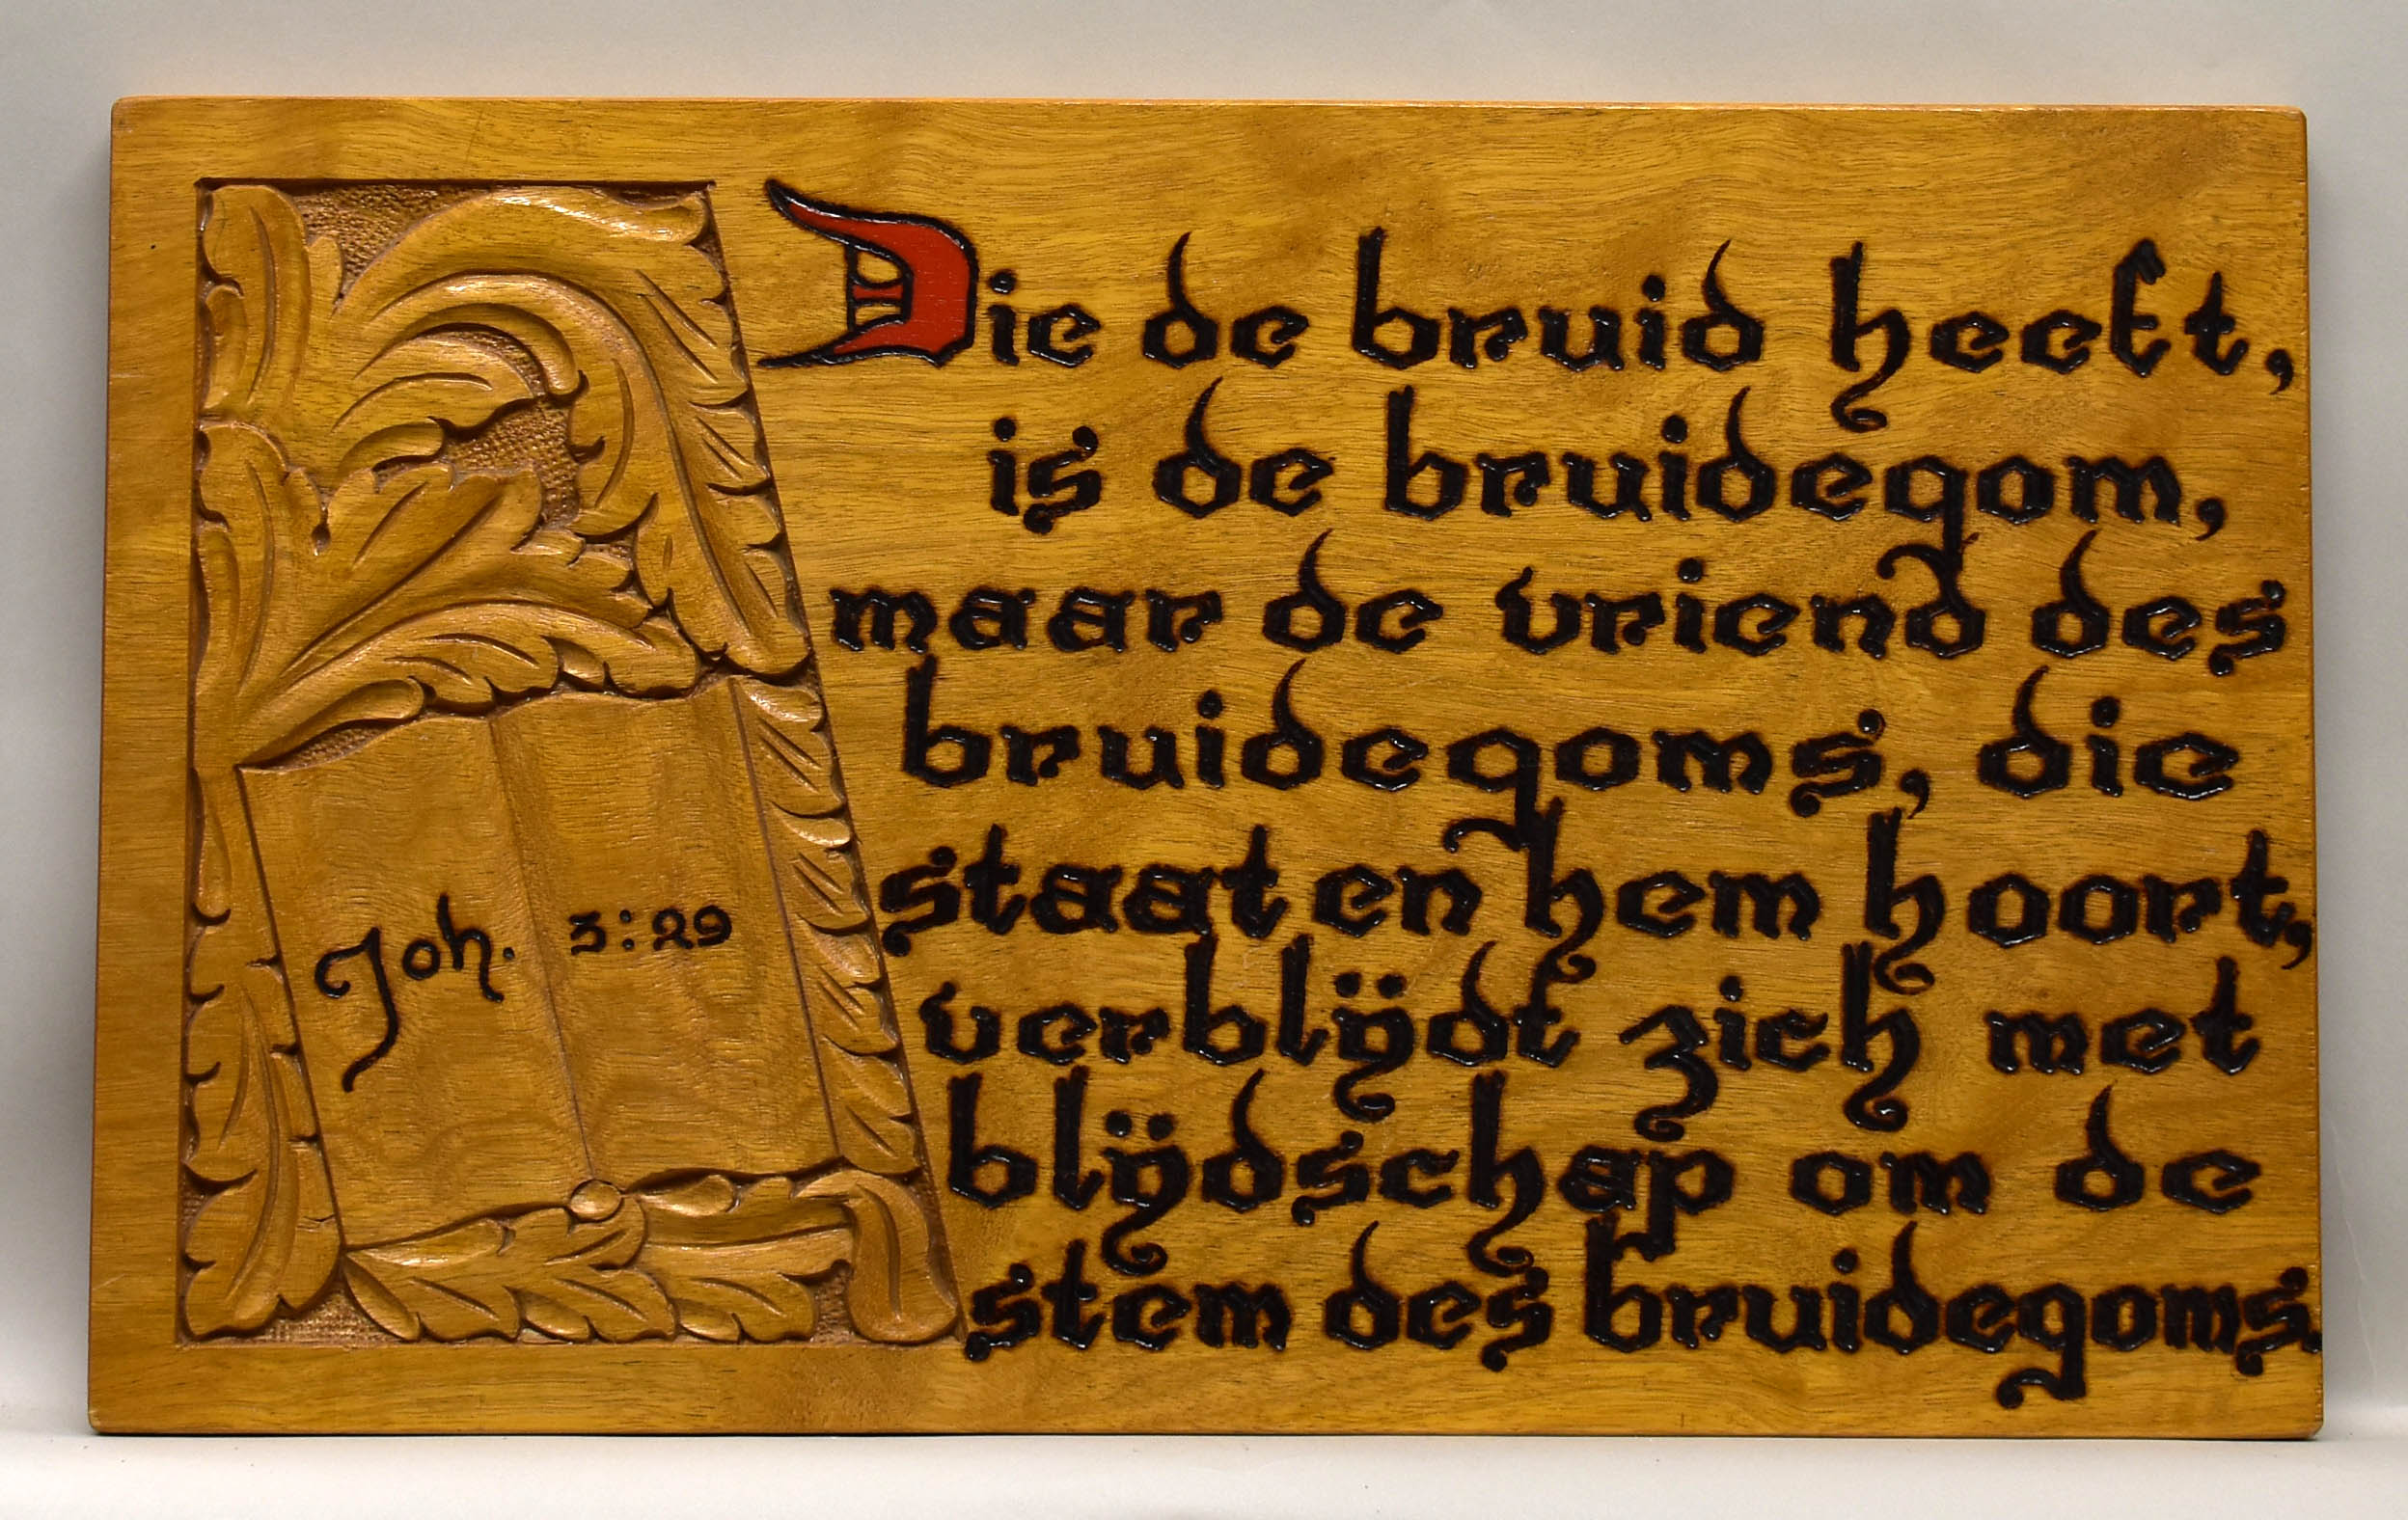 Joh. 3:29
Die de bruid heeft,
is de bruidegom,
maar de vriend des
bruidegoms, die
staat en hem hoort,
verblijdt zich met
blijdschap om de
stem des bruidegoms.